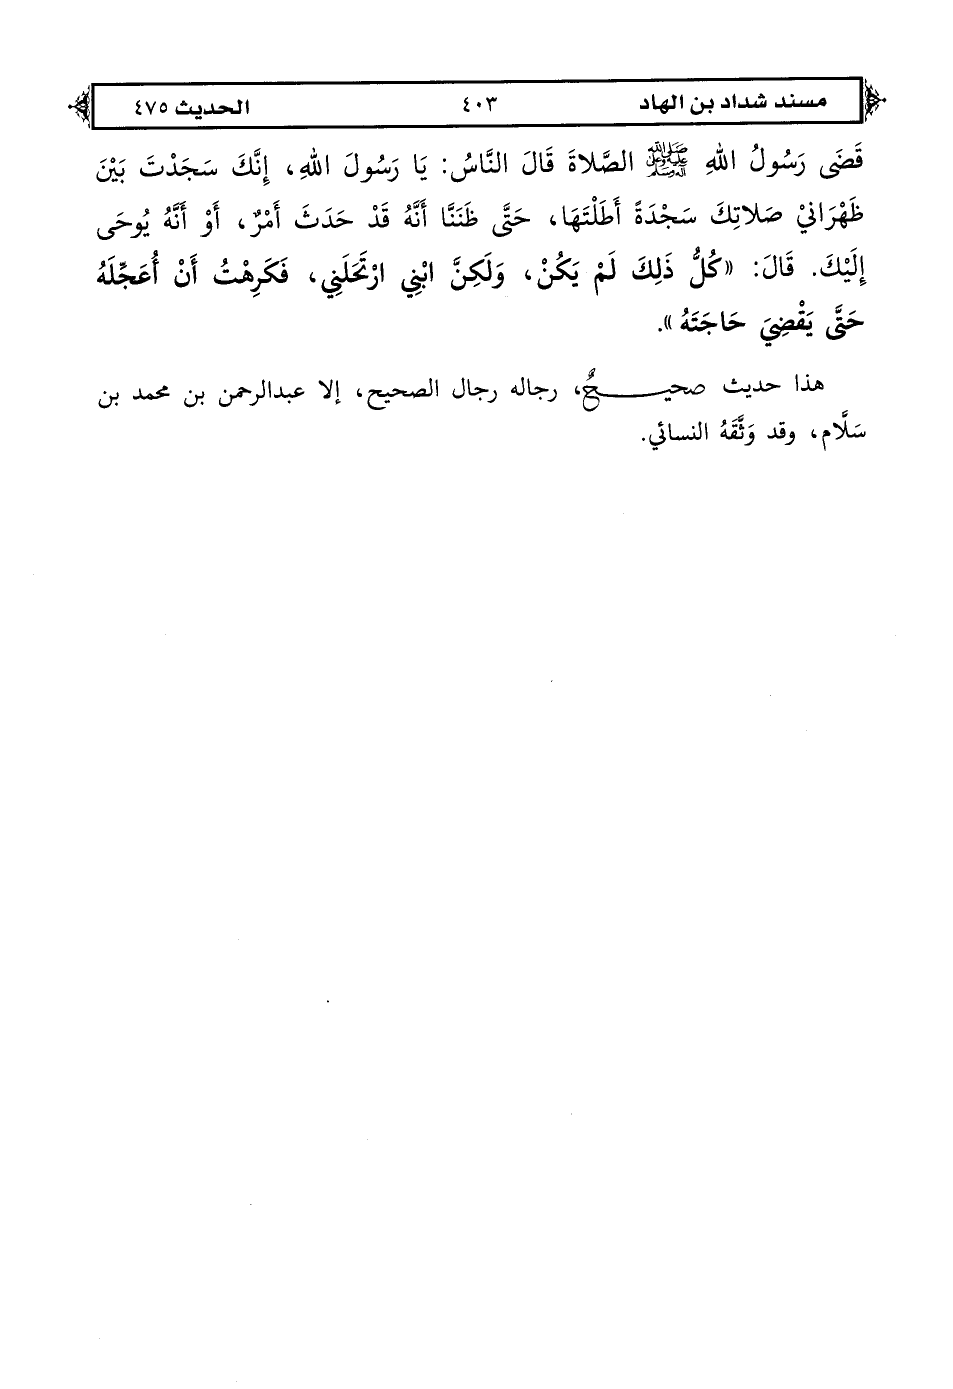 مسند شداد بن الهاد ٤٠٣ الحديث ٤٧٥
قَضَى رَسُولُ اللهِ ﷺ الصَّلاةَ قَالَ النَّاسُ: يَا رَسُولَ اللهِ، إِنَّكَ سَجَدْتَ بَيْنَ
ظَهْرَانيْ صَلاتِكَ سَجْدَةً أَطَلْتَهَا، حَتَّى ظَنَنَّا أَنَّهُ قَدْ حَدَثَ أَمْرٌ، أَوْ أَنَّهُ يُوحَى
إِلَيْكَ. قَالَ: «كُلُّ ذَلِكَ لَمْ يَكُنْ، وَلَكِنَّ ابْنِي ارْتَحَلَنِي، فَكَرِهْتُ أَنْ أُعَجِّلَهُ
حَتَّى يَقْضِيَ حَاجَتَهُ».
هذا حديث صحيـــــحٌ، رجاله رجال الصحيح، إلا عبدالرحمن بن محمد بن
سَلَّام، وقد وَثَّقَهُ النسائي.